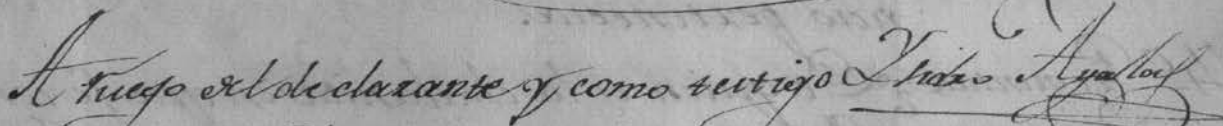 A ruego del declarante y como testigo Ysidro Ayala